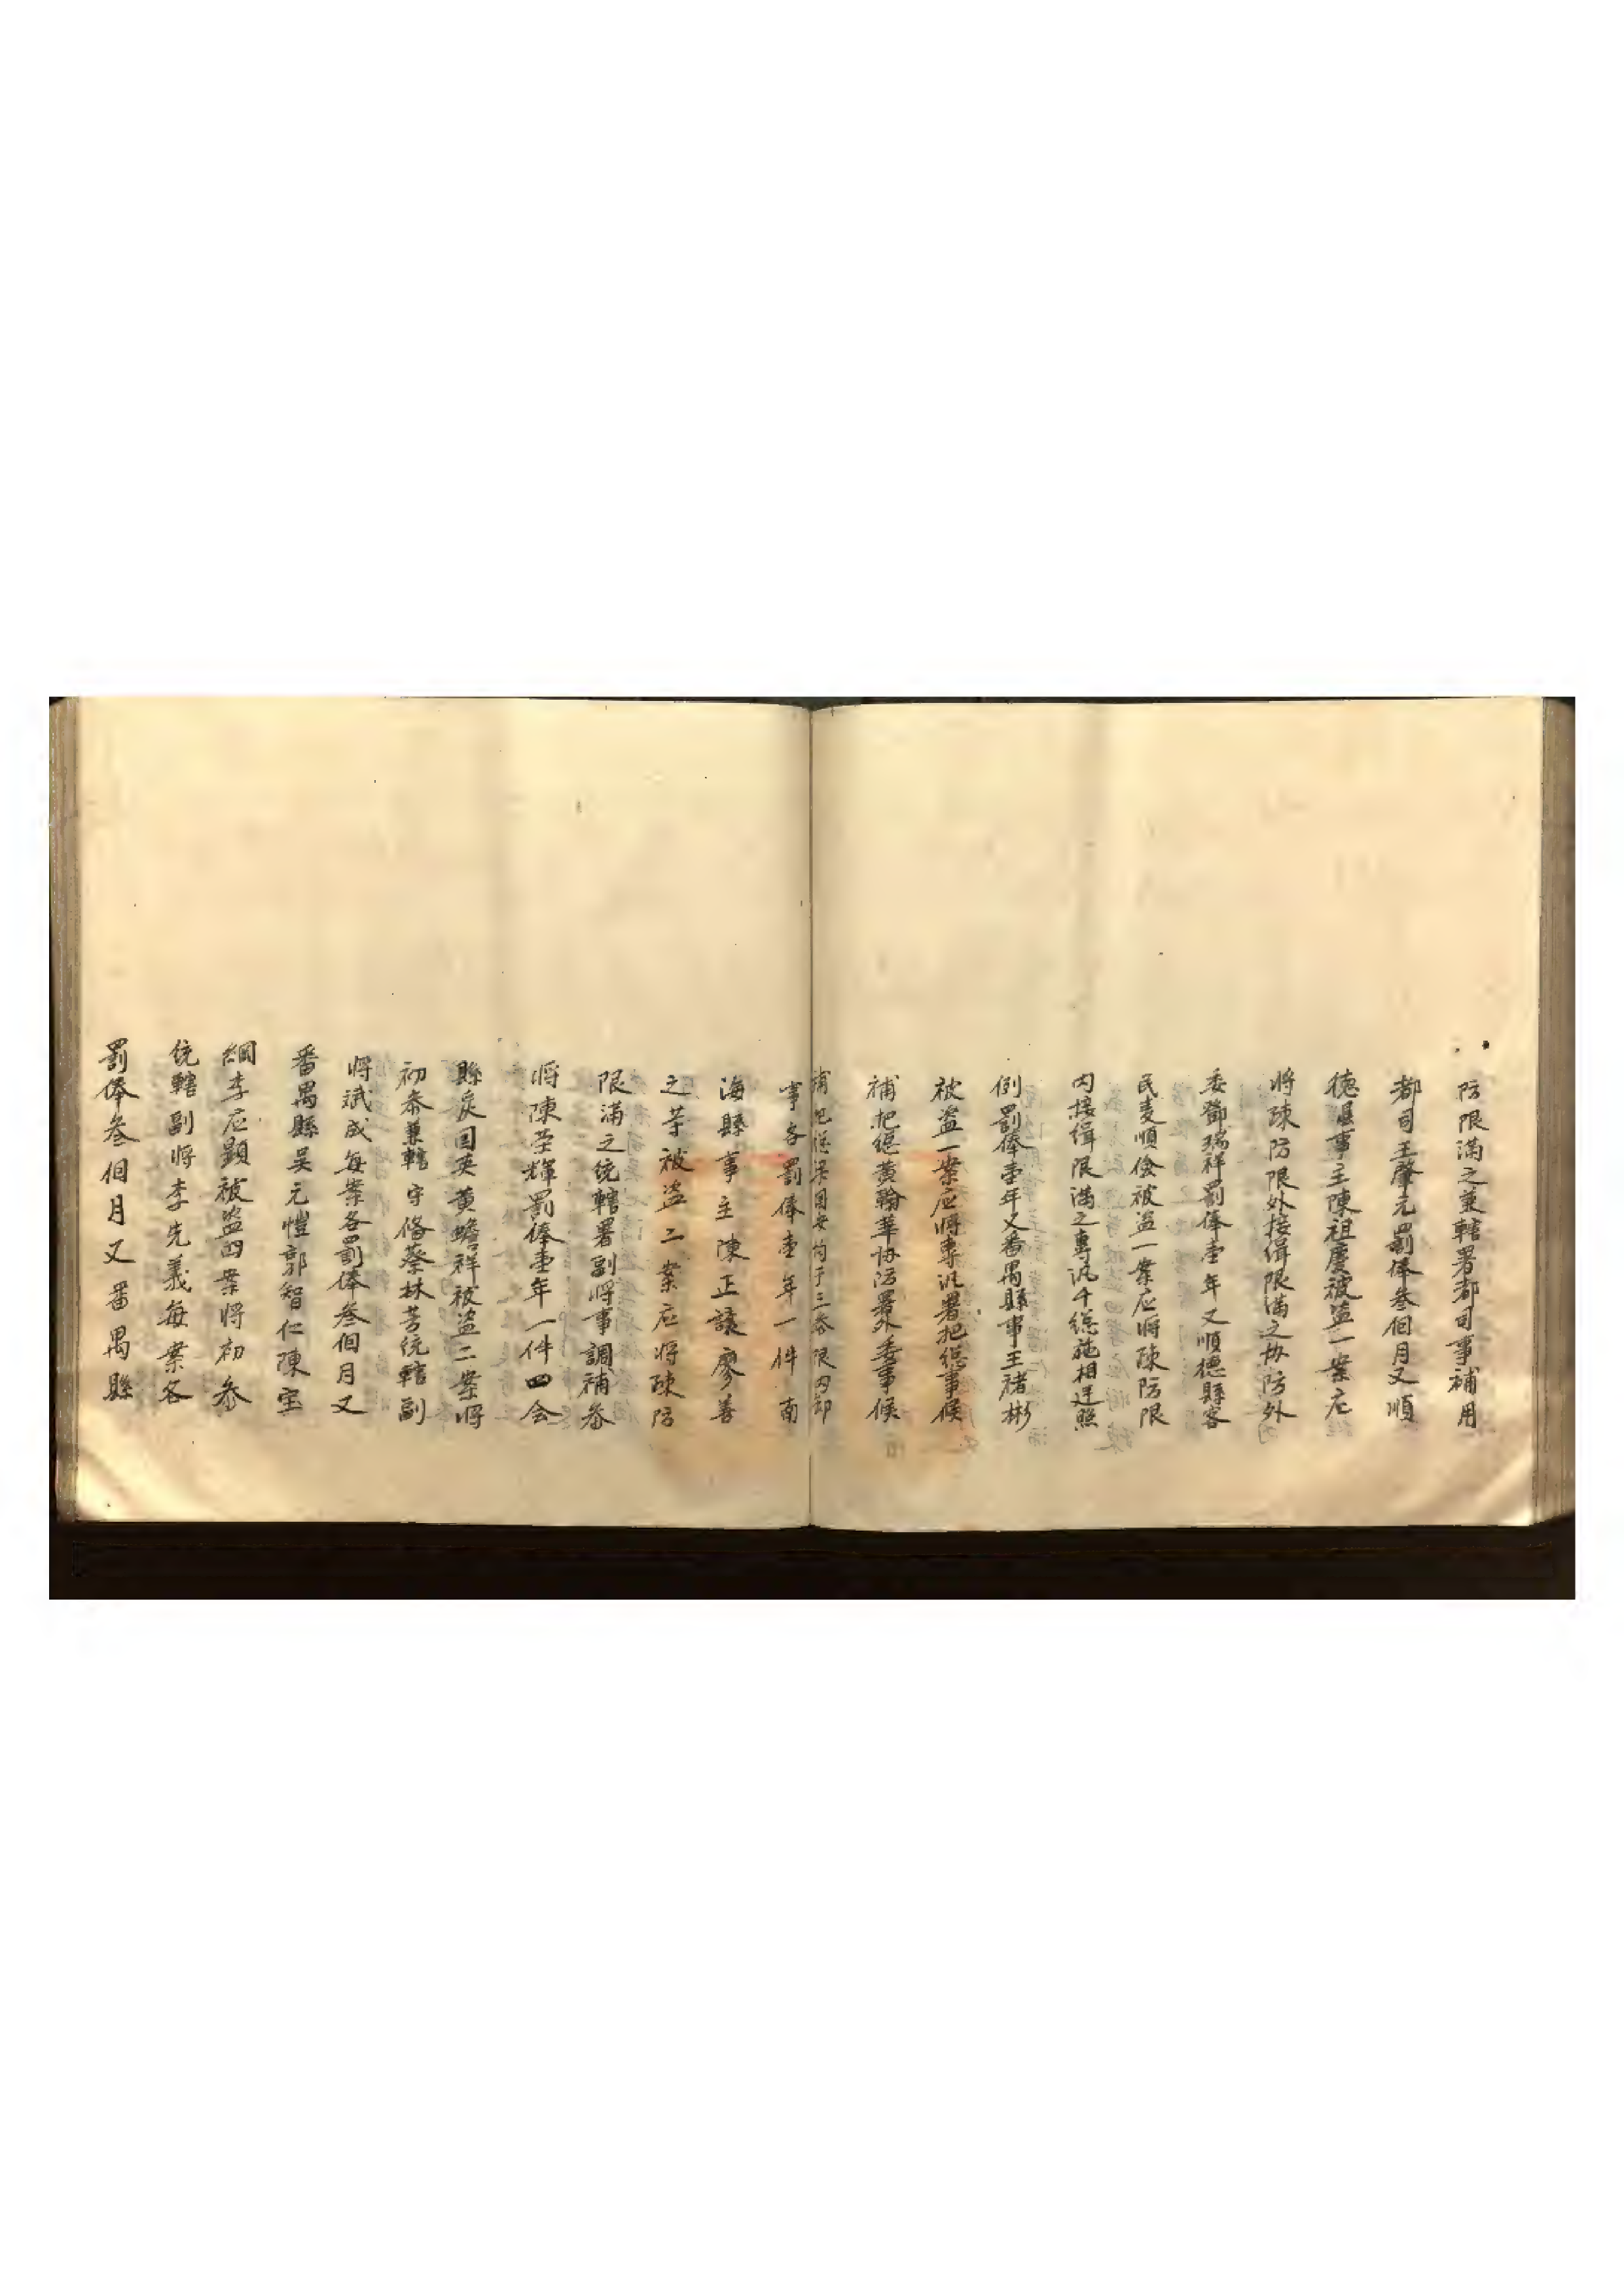 防限滿之兼轄署都司事補用
都司王肇元罰俸叁個月又順
德縣事主陳祖慶被盜一案应
將疎防限外接緝限滿之协防外
委鄧瑞祥罰俸壹年又順德縣客
民麦順儉被盜一案应將疎防限
内接緝限滿之專汛千緫施相廷照
例罰俸壹年又番禺縣事主褚彬
被盜一案应將專汛署把緫事候
補把緫黃翰華协防署外委事候
補把緫梁國安均于三叅限内卸
事各罰俸壹年一件 南
海縣事主陳正讓廖善
之等被盜二案应將疎防
限滿之統轄署副將事調補叅
將陳荣輝罰俸壹年一件四会
縣炭囯英黄蟾祥被盜二案將
初叅兼轄守俻蔡林芳統轄副
將斌成每案各罰俸叁個月又
番禺縣吴元愷郭智仁陳宝
綱李应顕被盜四案將初叅
統轄副將李先義每案各
罰俸叁個月又番禺縣